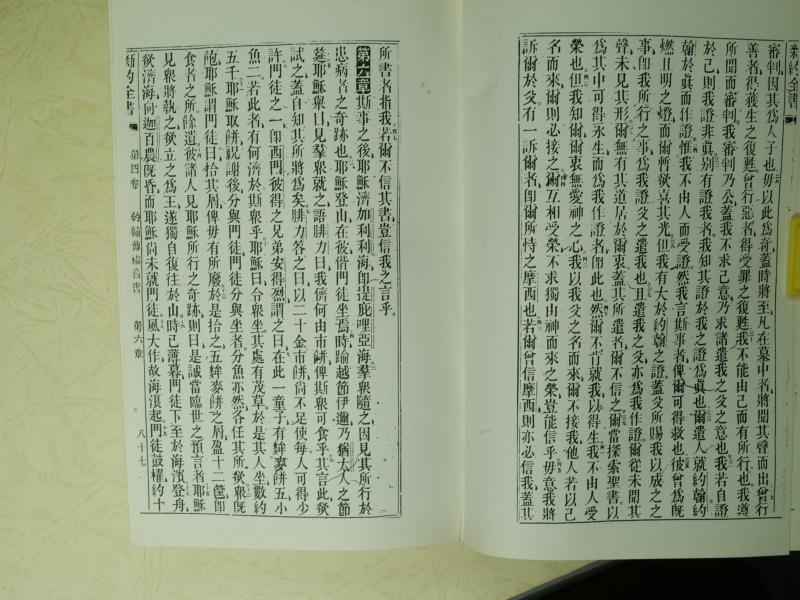 新約全書
審判因其爲人子也毋以此爲奇蓋時將至凡在墓中者將聞其聲而出曾行
善者得獲生之復甦曾行惡者得受罪之復甦我不能由己而有所行也我遵
所聞而審判我審判乃公蓋我不求己意乃求諸遣我之父之意也我若自證
於己則我證非眞別有證我者我知其證於我之證爲眞也爾遣人就約翰約
翰於眞而作證惟我不由人而受證然我言斯事者俾爾可得救也彼曾爲旣
燃且明之燈而爾暫欲喜其光但我有大於約翰之證蓋父所賜我以成之之
事卽我所行之事爲我證父之遣我也且遣我之父亦爲我作證爾從未聞其
聲未見其形爾無有其道居於爾衷蓋其所遣者爾不信之爾當探索聖書以
爲其中可得永生而爲我作證者卽此也然爾不肯就我以得生我不由人受
榮也但我知爾衷無愛神之心我以我父之名而來爾不接我他人若以己
名而來則必接之爾互相受榮不求獨由神而來之榮豈能信乎毋意我將
訴爾於父有一訴爾者卽爾所恃之摩西也若爾曾信摩西則亦必信我蓋其
所書者指我若爾不信其書豈信我之言乎
第六章斯事之後耶穌濟加利利海卽提庇哩亞海羣衆隨之因見其所行於
患病者之奇跡也耶穌登山在彼偕門徒坐焉時踰越節伊邇乃猶太人之節
筵耶穌舉目見羣衆就之語腓力曰我儕何由市餅俾斯衆可食乎其言此欲
試之蓋自知其所將爲矣腓力答之曰以二十金市餅尙不足使每人可得少
許門徒之一卽西門彼得之兄弟安得烈謂之曰在此一童子有麰麥餅五小
魚二若此者有何濟於斯衆乎耶穌曰令衆坐其處有茂草於是其人坐數約
五千耶穌取餅祝謝後分與門徒門徒分與坐者分魚亦然各任其所欲衆旣
飽耶穌謂門徒曰拾其屑俾毋有所廢於是拾之五麰麥餅之屑盈十二筐卽
食者之所餘遺彼諸人見耶穌所行之奇跡則曰是誠當臨世之預言者耶穌
見衆將執之欲立之爲王遂獨自復往於山時已薄暮門徒下至於海濱登舟
欲濟海向迦百農旣昏而耶穌尙未就門徒風大作故海浪起門徒鼓櫂約十
新約全書 第四卷 約翰傳福音書 第六章 八十七